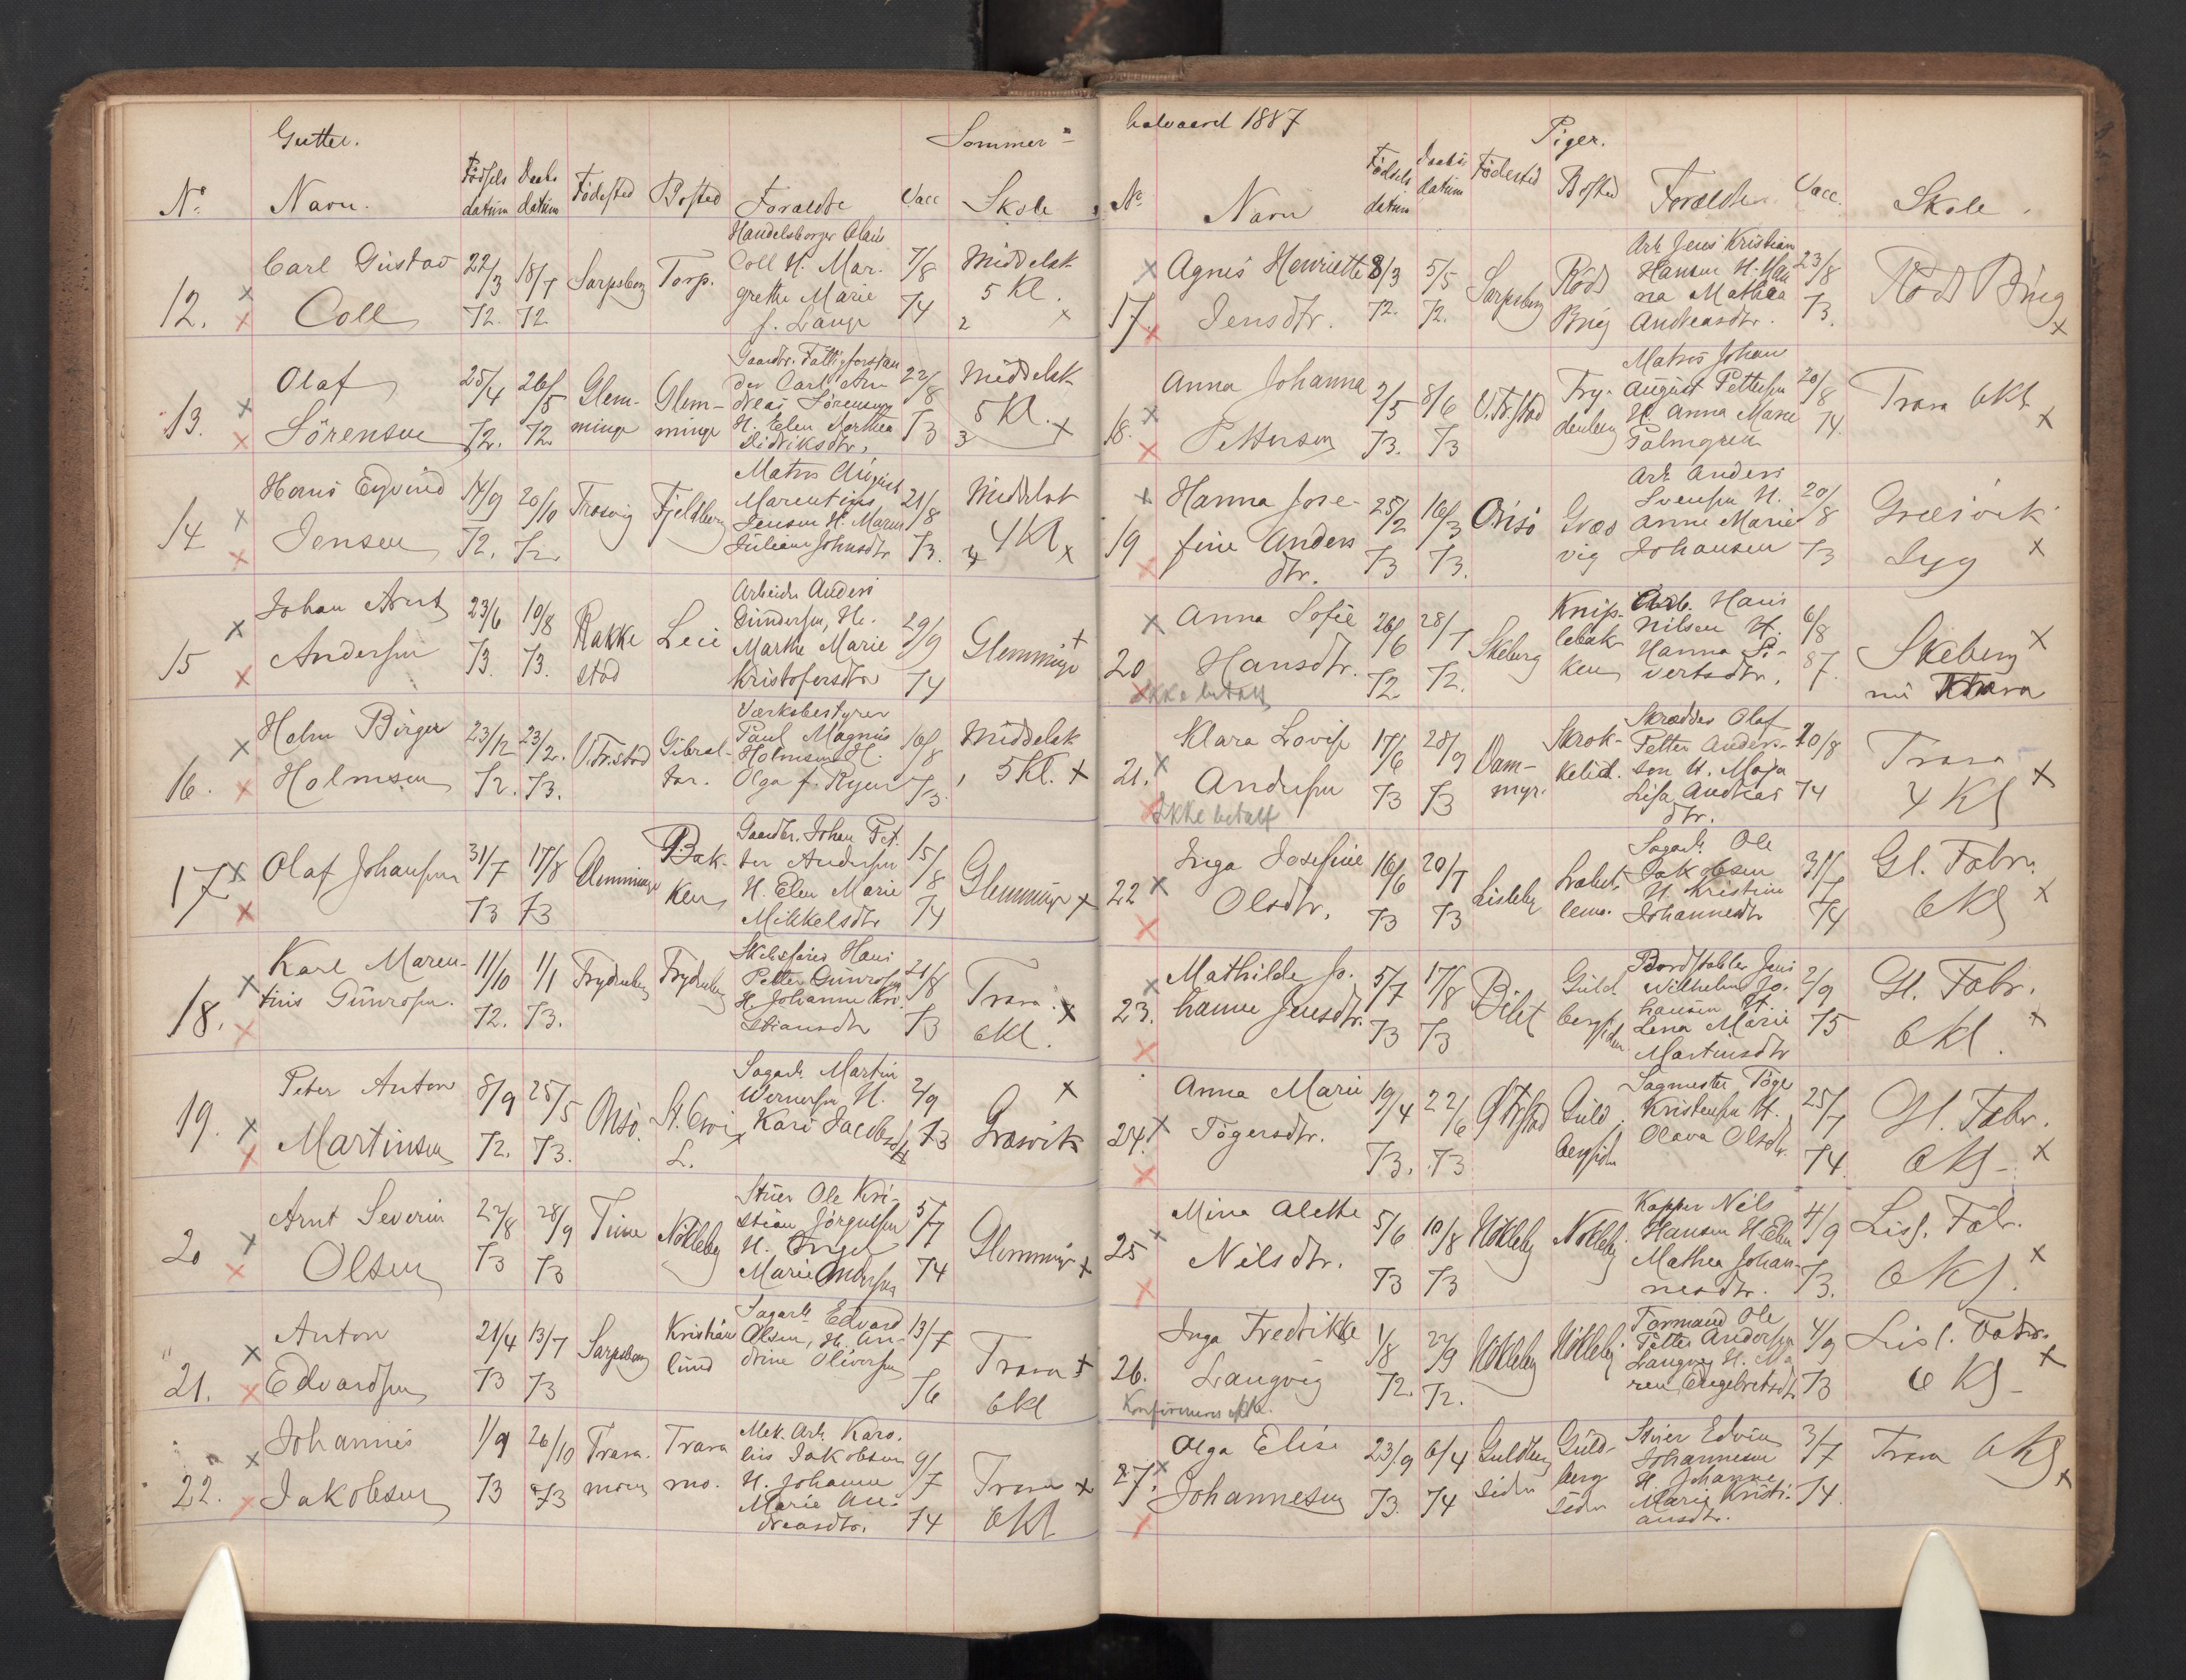 Gutter.
Sommer-
No. Navn. Fødsels datum Daabs datum Fødested Bosted Forældre Vacc Skole
12. Carl Gustav Coll 22/3 72. 18/7 72 Sarpsborg Torp. Handelsborger Claus Coll H. Mar- grethe Marie f. Lange 7/8 74 Middelsk 5 Kl. 2
13. Olaf Sörensen 25/4 72. 26/5 72 Glem- minge Glem- minge Gaardbr. Fattigforstan der Carl An dreas Sörensen H. Elen Dorthea Didriksdtr. 22/8 73 Middelsk 5 Kl. 3
14 Hans Eyvind Jensen 14/9 72. 20/10 72 Trosvig Fjeldberg Matros August Marentius Jensen H. Maren Juliane Johnsdtr 21/8 73. Middelsk 4 Kl 4
15 Johan Arnt Andersen 23/6 73. 10/8 73. Rakke stad Leie Arbeider Anders Gundersen, H. Marthe Marie Kristofersdtr 29/9 74 Glemminge
16. Holm Birger Holmsen 23/12 72. 23/2. 73. V. Fr.stad Gibral- tar. Værksbestyrer Paul Magnus Holmsen H. Olga f. Ryen 16/8 73 Middelsk 5 Kl. 1
17 Olaf Johansen 31/7 73 17/8 73 Glemminge Bak- ken Gaardbr. Johan Pet. ter Andersen H. Elen Marie Mikkelsdtr 15/8 74 Glemminge
18. Karl Maren- tius Gunrosen. 11/10 72. 1/1 73. Frydenberg Frydenberg Skibsfører Hans Petter Gunrosen H. Johanne Kri- stiansdtr 21/8 73 Trara 6 Kl.
19. Peter Anton Martinsen 8/9 72. 25/5 73. Onsö. St. L. Sagarb. Martin Wernersen H. Kari Jacobsdtr 2/9 73 Græsvik
20 Arnt Severin Olsen 22/8 73 28/9 73 Tune Nökleby Stuer Ole Kri- stian Jörgensen H. Inger Marie 5/7 74 Glemminge
21. Anton Edvardsen 21/4 73 13/7 73 Sarpsborg Kristian lund Sagarb. Edvard Olsen, H. An- drine Oliversen 13/7 76 Trara 6 Kl
22. Johannes Jakobsen 1/9 73 26/10 73 Trara. moen Trara mo. Mek. Arb. Karo. lius Jakobsen H. Johanne Marie An- dreasdtr. 9/7 74 Trara 6 Kl
halvaaret 1887
Piger.
No. Navn Fødsels datum Daabs datum Fødested Bosted Forældre Vacc. Skole.
17. Agnes Henriette Jensdtr. 8/3 72. 5/5 72. Sarpsborg Röds Brug Arb. Jens Kristian Hansen H. Han na Mathea Andreasdtr. 23/8 73. Röds Brug
18. Anna Johanna Pettersen 2/5 73. 8/6 73 V. Fr.stad Fry- denberg Matros Johan August Pettersen H. Anna Marie Palmgren 20/8 74. Trara 6 Kl
19 Hanna Jose- fine Anders dtr. 25/2 73 16/3 73. Onsö Græs vig Arb. Anders Svensen H. Anne Marie Johansen 20/8 73 Græsvik Syg
20 Anna Sofie Hansdtr. 26/6 72 28/7 72. Skeberg Knip- lebak- ken Arb. Hans Nilsen H. Hanna Si- vertsdtr. 6/8 87. Skeberg nu Trara
Ikke betalt
21. Klara Lovise Andersen 17/6 73 28/9 73 Dam- myr. Skrok- kelid. Skrædder Olaf Petter Anders- son H. Maja Lisa Andreas dtr. 20/8 74 Trara 4 Kl
Ikke betalt
22 Inga Josefine Olsdtr. 16/6 73 20/7 73 Lisleby Sagarb. Ole Jakobsen H. Kristine Johannesdtr 31/7 74 Gl. Fabr. 6 Kl
23. Mathilde Jo. hanne Jensdtr. 5/7 73 17/8 73 Bilet Guld bergsiden Bordstabler Jens Wilhelm Jo. hansen H. Lena Marie Martinsdtr 2/9 75 Gl. Fabr. 6 Kl.
24. Anna Marie Tögersdtr. 19/4 73. 22/6 73 Gl. Fr.stad Guld bergsiden Sagmester Töger Kristensen H. Olava Olsdtr. 25/7 74. Gl. Fabr. 6 Kl
25 Mina Alette Nilsdtr. 5/6 73 10/8 73 Nökleby Nökleby Kapper Nils Hansen H. Elen Mathea Johan- nesdtr. 4/9 73. Lisl. Fabr. 6 Kl.
26. Inga Fredrikke Langvig 1/8 72. 22/9 72. Nökleby Nökleby. Formand Ole Petter Andersen Langvig H. Ma ren Engebretsdtr 4/9 73 Lisl. Fabr. 6 Kl
Konfirmeres ikke.
27. Olga Elise Johannesen 23/9 73. 6/4 74 Guldberg siden Guld- berg siden Stuer Edvin Johannesen H. Johanne Marie Kristi- ansdtr. 3/7 74. Trara 6 Kl